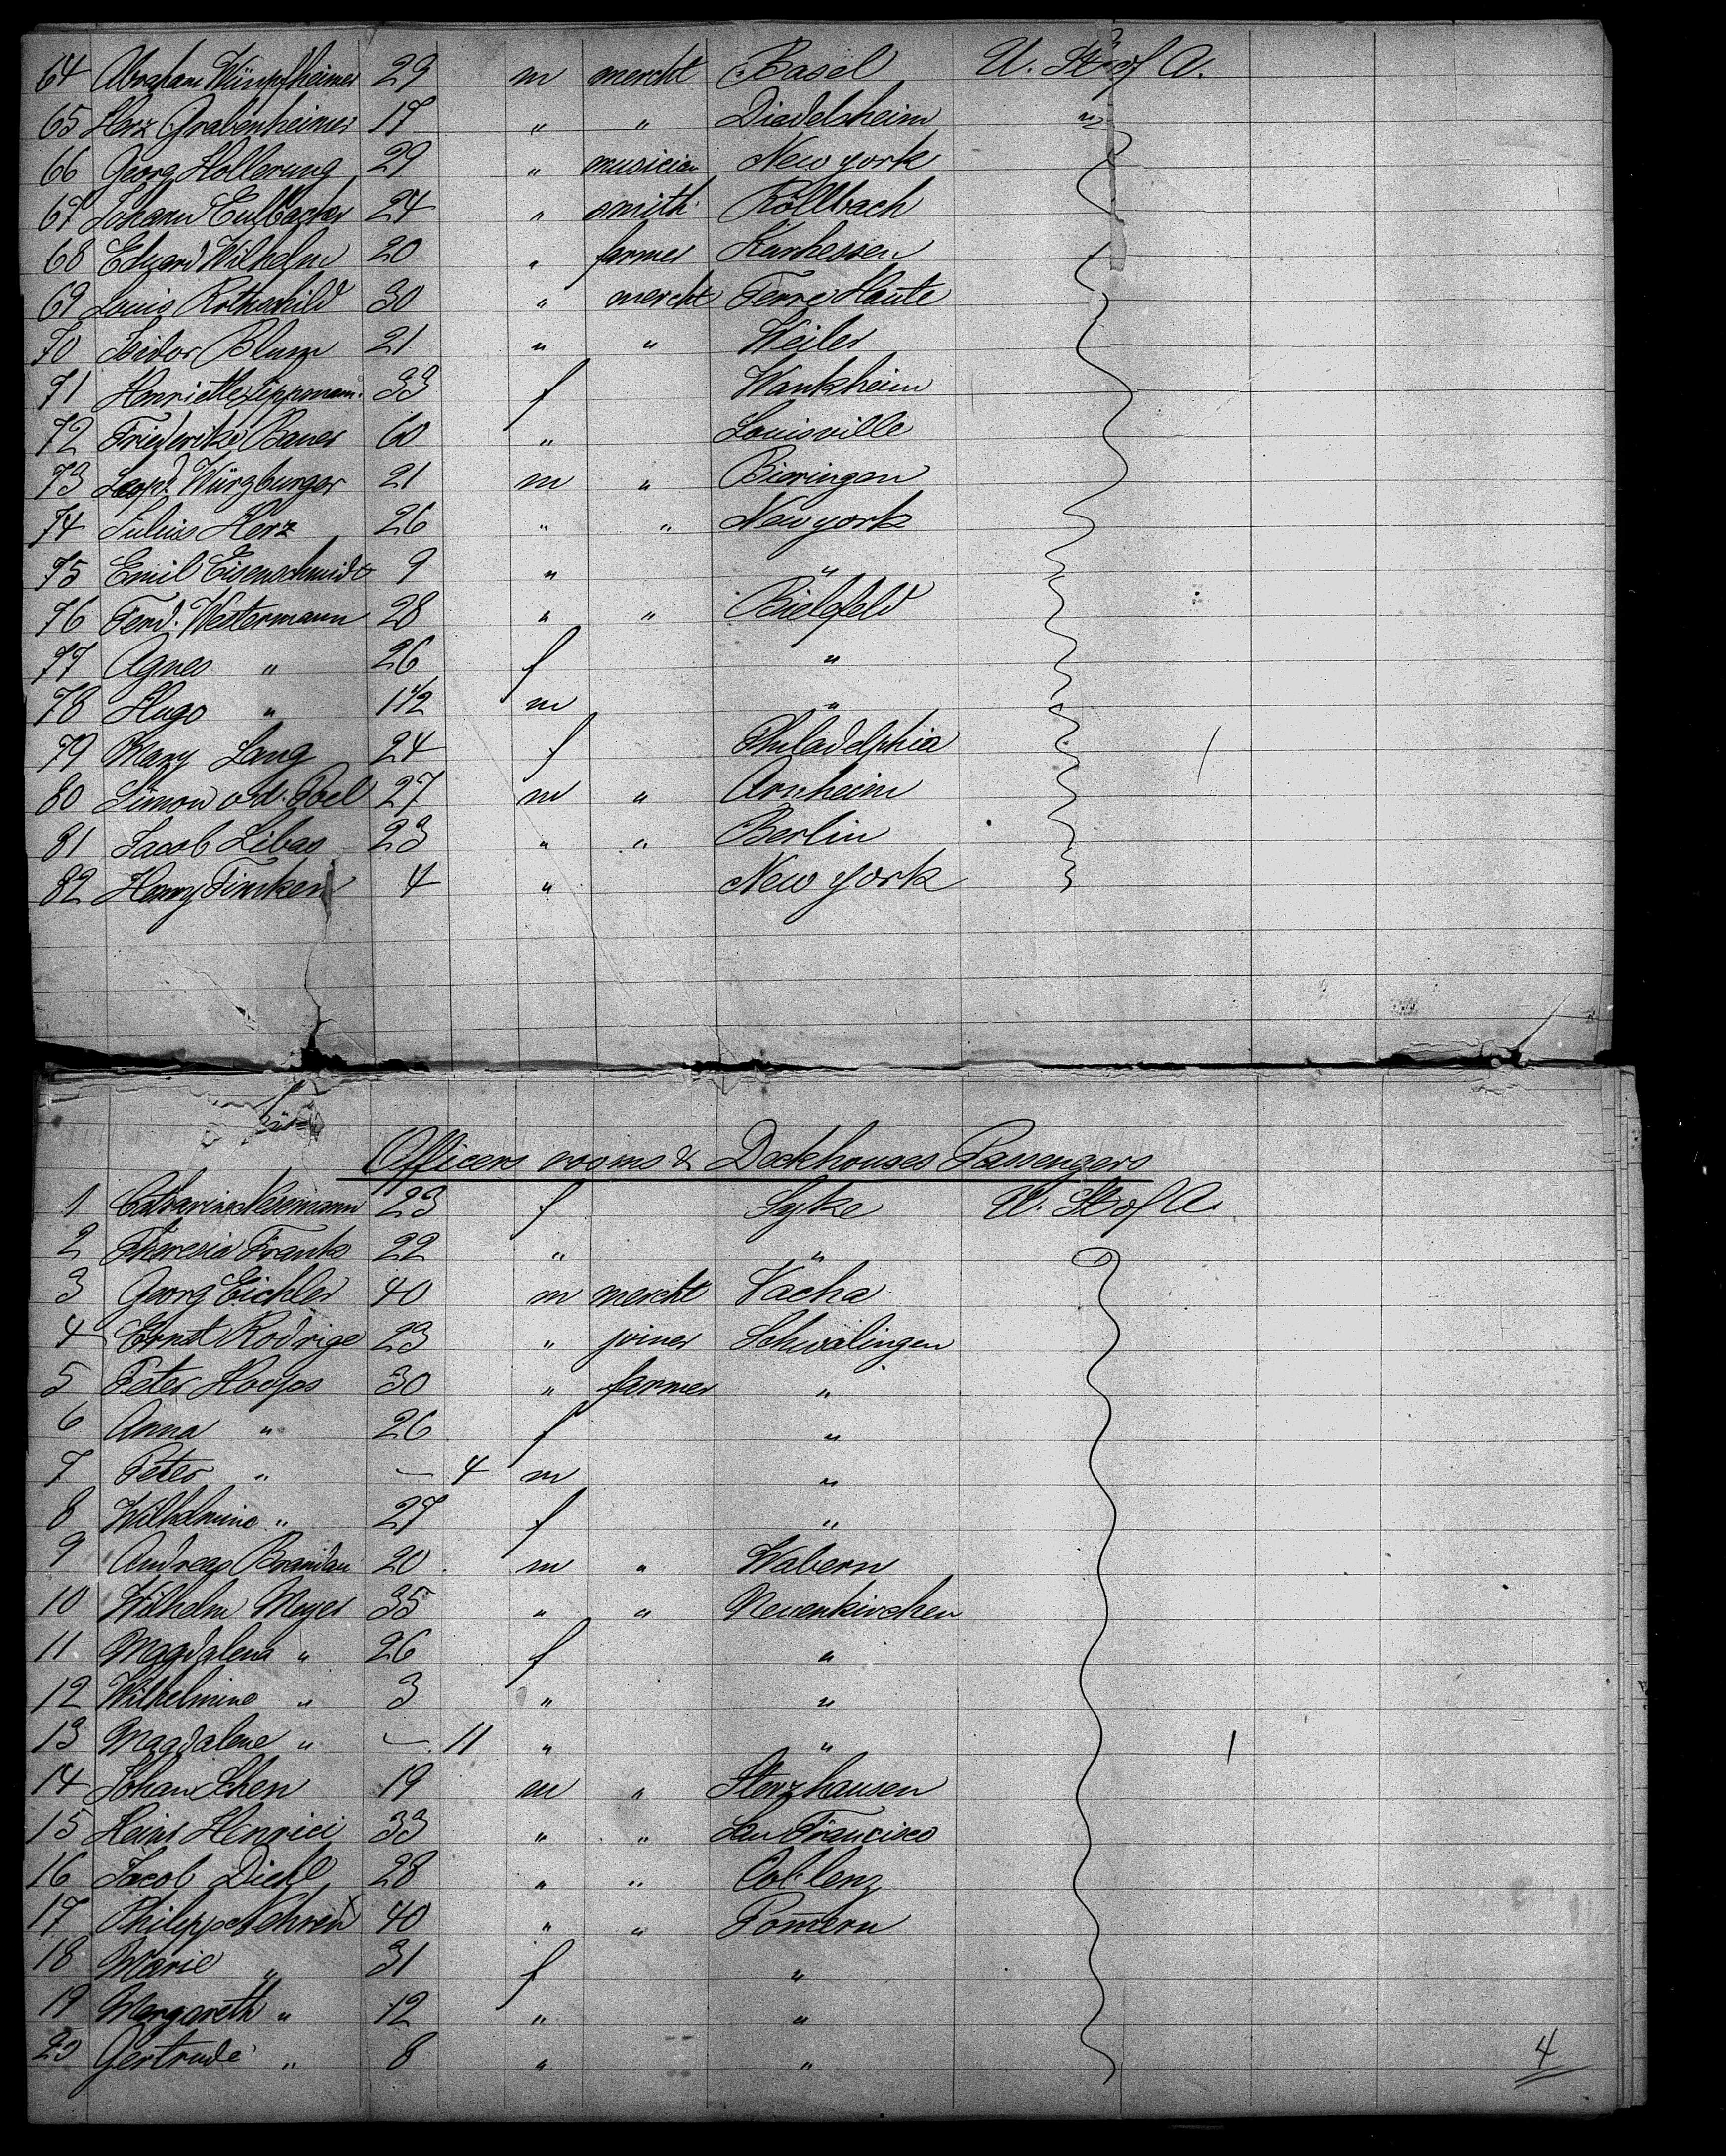 64 Abraham Wümpfheimer 29 m mercht Basel U. St. of A.
65 Herz Grabenheimer 17 " " Diedelsheim "
66 Georg Hollerung 29 " musician New york
67 Johann Eulbacher 24 " smith Röllbach
68 Eduard Wilhelm 20 " farmer Kurhessen
69 Louis Rothschild 30 " mercht Terre Haute
70 Isidor Blum 21 " " Weiler
71 Henriette Lippmann 33 f Wankheim
72 Friederike Bauer 60 " Louisville
73 Leopd. Würzburger 21 m " Bieringen
74 Julius Herz 26 " " New york
75 Emil Eisenschmidt 9 " "
76 Ferd. Westermann 28 " " Bielefeld
77 Agnes " 26 f "
78 Hugo " 1 1/2 m "
79 Mary Lang 24 f Philadelphia
80 Simon v. d. Poel 27 m " Arnheim
81 Jacob Libas 23 " " Berlin
82 Henry Timken 4 " New York
Officers rooms & Deckhouses Passengers
1 Catharine 23 f Syke U. St. of A.
2 Theresia Frank 22 " "
3 Georg Eichler 40 m mercht Vacha
4 Ernst Rodrige 23 " joiner Schwalingen
5 Peter Hoops 30 " farmer "
6 Anna " 26 f "
7 Peter " — 4 m "
8 Wilhelmine " 27 f "
9 Andreas Brandau 20 m " Wabern
10 Wilhelm Meyer 35 " " Neuenkirchen
11 Magdalena " 26 f "
12 Wilhelmine " 3 " "
13 Magdalene " — 11 " "
14 Johan Schen 19 m " Sterzhausen
15 Heinr Henrici 33 " " San Francisco
16 Jacob Diehl 28 " " Coblenz
17 Philipp Nehren 40 " " Pom̄ern
18 Marie " 31 f "
19 Margareth " 12 " "
20 Gertrude " 8 " "
4